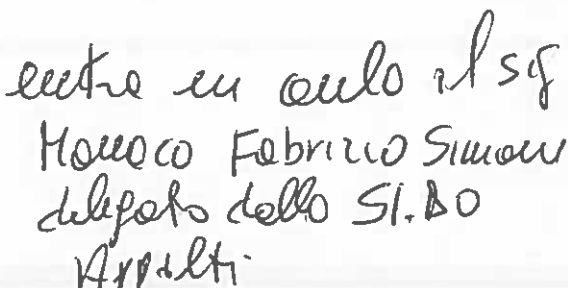 entra in aula il sig
Monaco Fabrizio Simone
delegato dalla SI.DO
Appalti